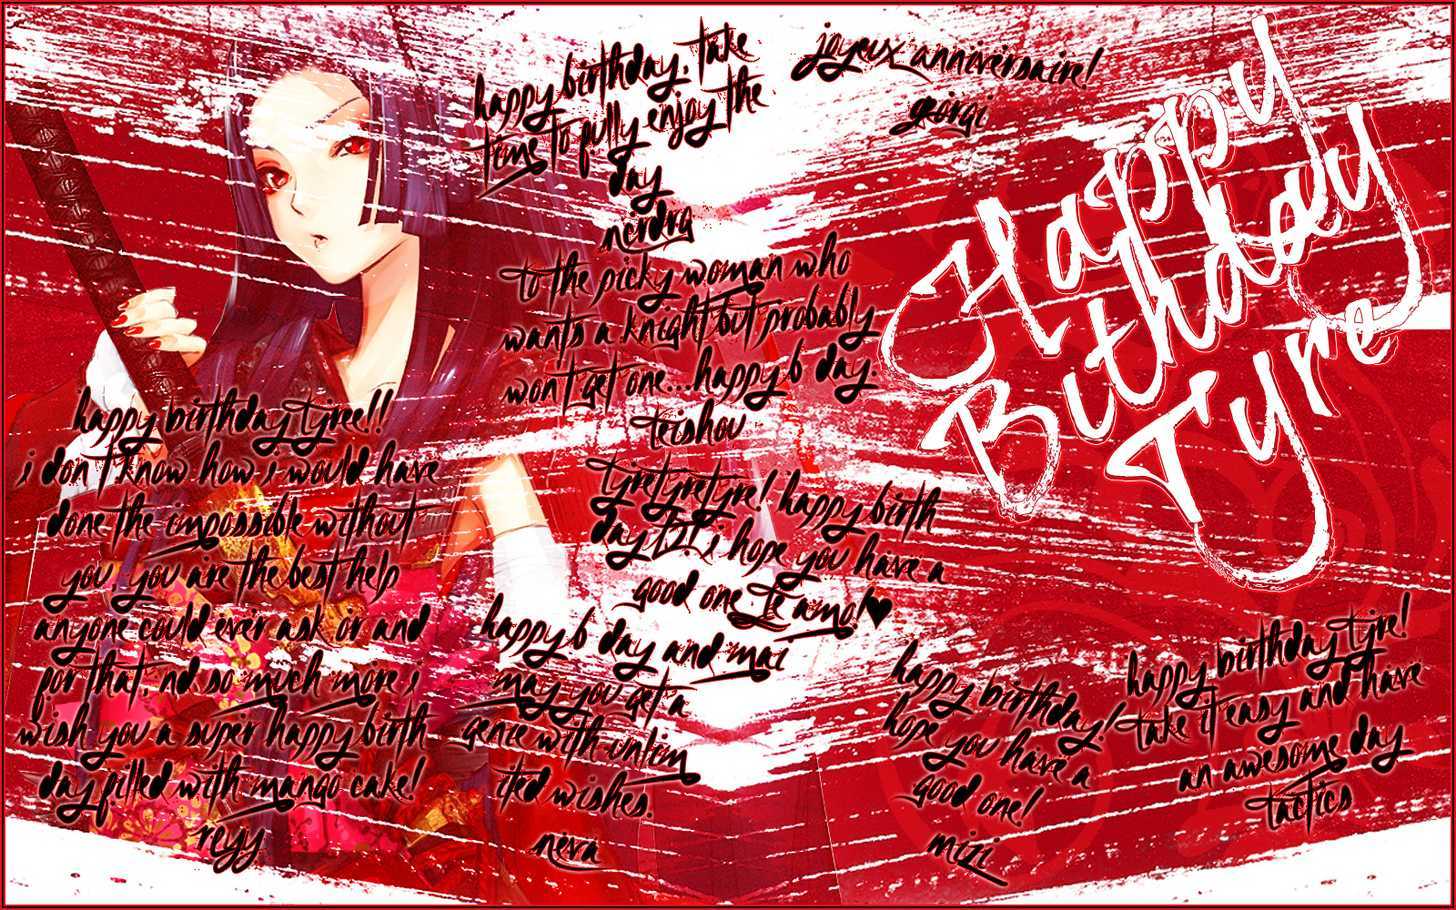 happy birthday. take
time to fully enjoy the
day
nerdra
joyeux anniversaire!
georgi
Happy
Bithday
Tyre
to the picky woman who
wants a knight but probably
won't get one...happy b day.
teishou
happy birthday tyree!!
i don't know how i would have
done the impossible without
you. you are the best help
anyone could ever ask or and
for that. nd so much more i
wish you a super happy birth
day filled with mango cake!
reyy
tyretyretyre! happy birth
day i hope you have a
good one te amo!♥
happy b day and mai
may you get a
genie with unlim
ited wishes.
neva
happy birthday!
hope you have a
good one!
mizi
happy birthday tyre!
take it easy and have
an awesome day
tactics